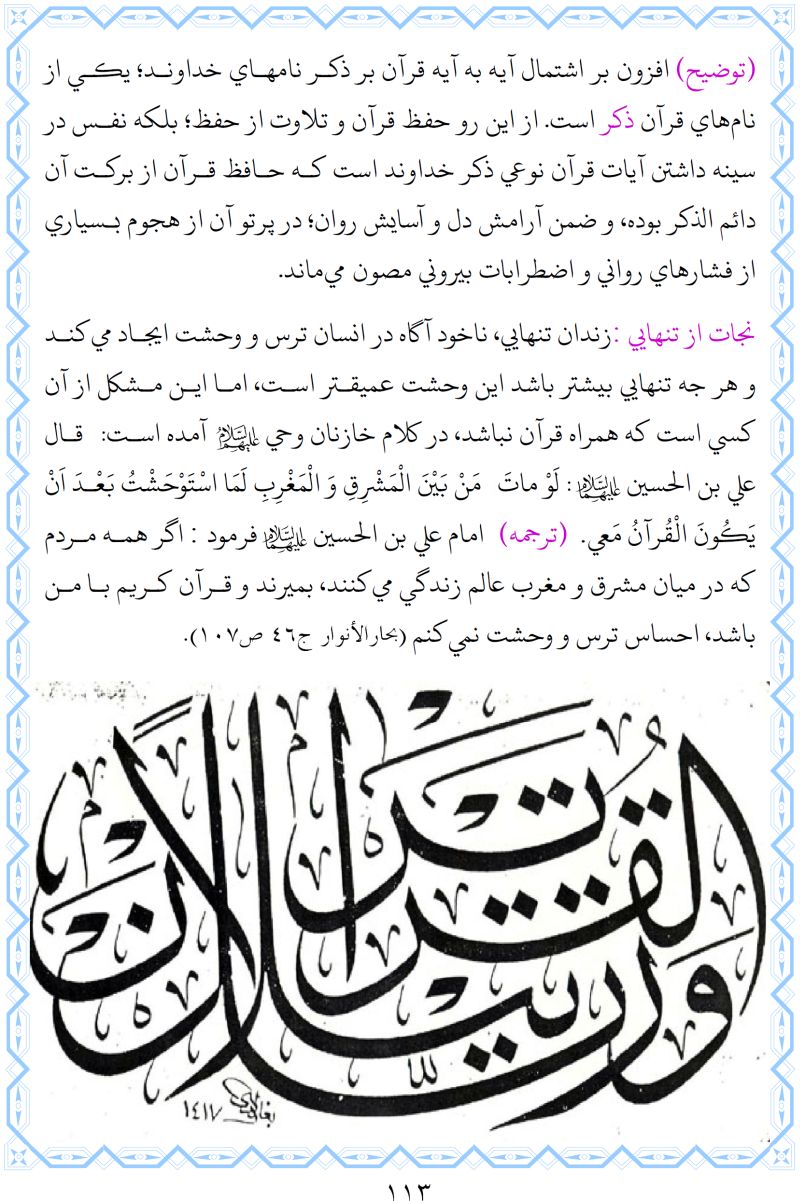 (توضيح) افزون بر اشتمال آيه به آيه قرآن بر ذكر نامهاي خداوند؛ يكي از
نام‌هاي قرآن ذكر است. از اين رو حفظ قرآن و تلاوت از حفظ؛ بلكه نفس در
سينه داشتن آيات قرآن نوعي ذكر خداوند است كه حافظ قرآن از بركت آن
دائم الذكر بوده، و ضمن آرامش دل و آسايش روان؛ در پرتو آن از هجوم بسياري
از فشارهاي رواني و اضطرابات بيروني مصون مي‌ماند.
نجات از تنهايي :زندان تنهايي، ناخود آگاه در انسان ترس و وحشت ايجاد مي‌كند
و هر جه تنهايي بيشتر باشد اين وحشت عميقتر است، اما اين مشكل از آن
كسي است كه همراه قرآن نباشد، در كلام خازنان وحي عليهم السلام آمده است: قال
علي بن الحسين عليهما السلام: لَوْ ماتَ مَنْ بَيْنَ الْمَشْرِقِ وَ الْمَغْرِبِ لَمَا اسْتَوْحَشْتُ بَعْدَ اَنْ
يَكُونَ الْقُرآنُ مَعي. (ترجمه) امام علي بن الحسين عليهما السلام فرمود : اگر همه مردم
كه در ميان مشرق و مغرب عالم زندگي مي‌كنند، بميرند و قرآن كريم با من
باشد، احساس ترس و وحشت نمي‌كنم (بحارالأنوار ج٤٦ ص١٠٧).
ورتل القرآن ترتيلا
١٤١٧
١١٣